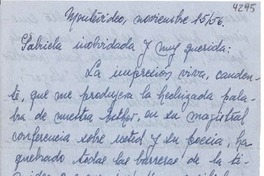 4295
Montevideo, noviembre 15/56.
Gabriela inolvidada y muy querida:
La impresión viva, canden-
te, que me produjera la hechizada pala-
bra de nuestra Esther, en su magistral
conferencia sobre usted y su poesía, ha
quebrado todas las barreras de la ti-